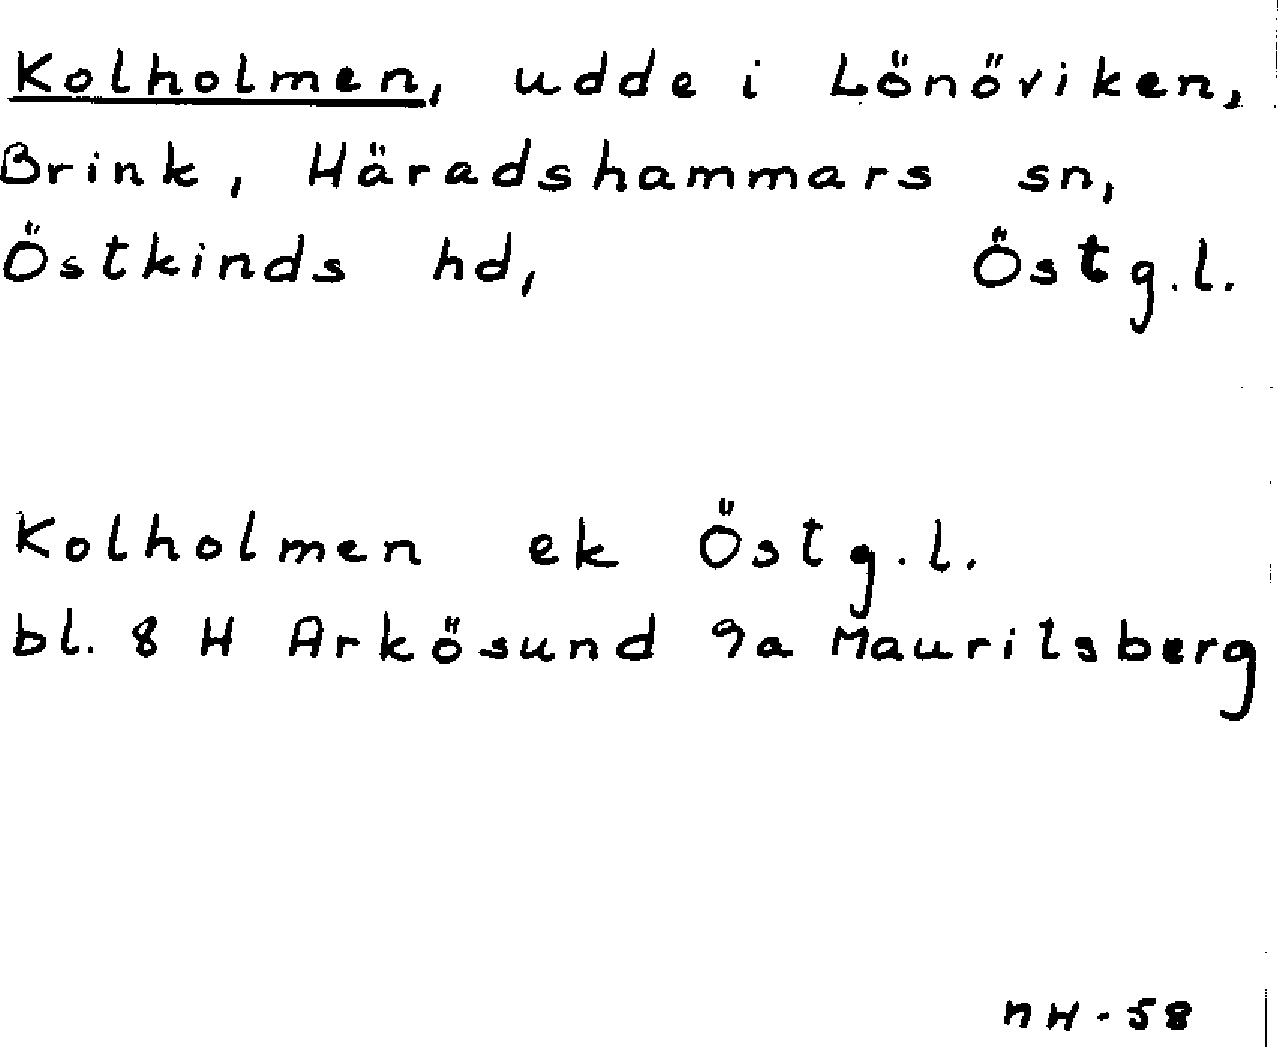 Kolholmen, udde i Lönöviken,
Brink, Häradshammars sn,
Östkinds hd, Östg.l.
Kolholmen ek Östg.l.
bl. 8 H Arkösund 9a Mauritsberg
NH-58